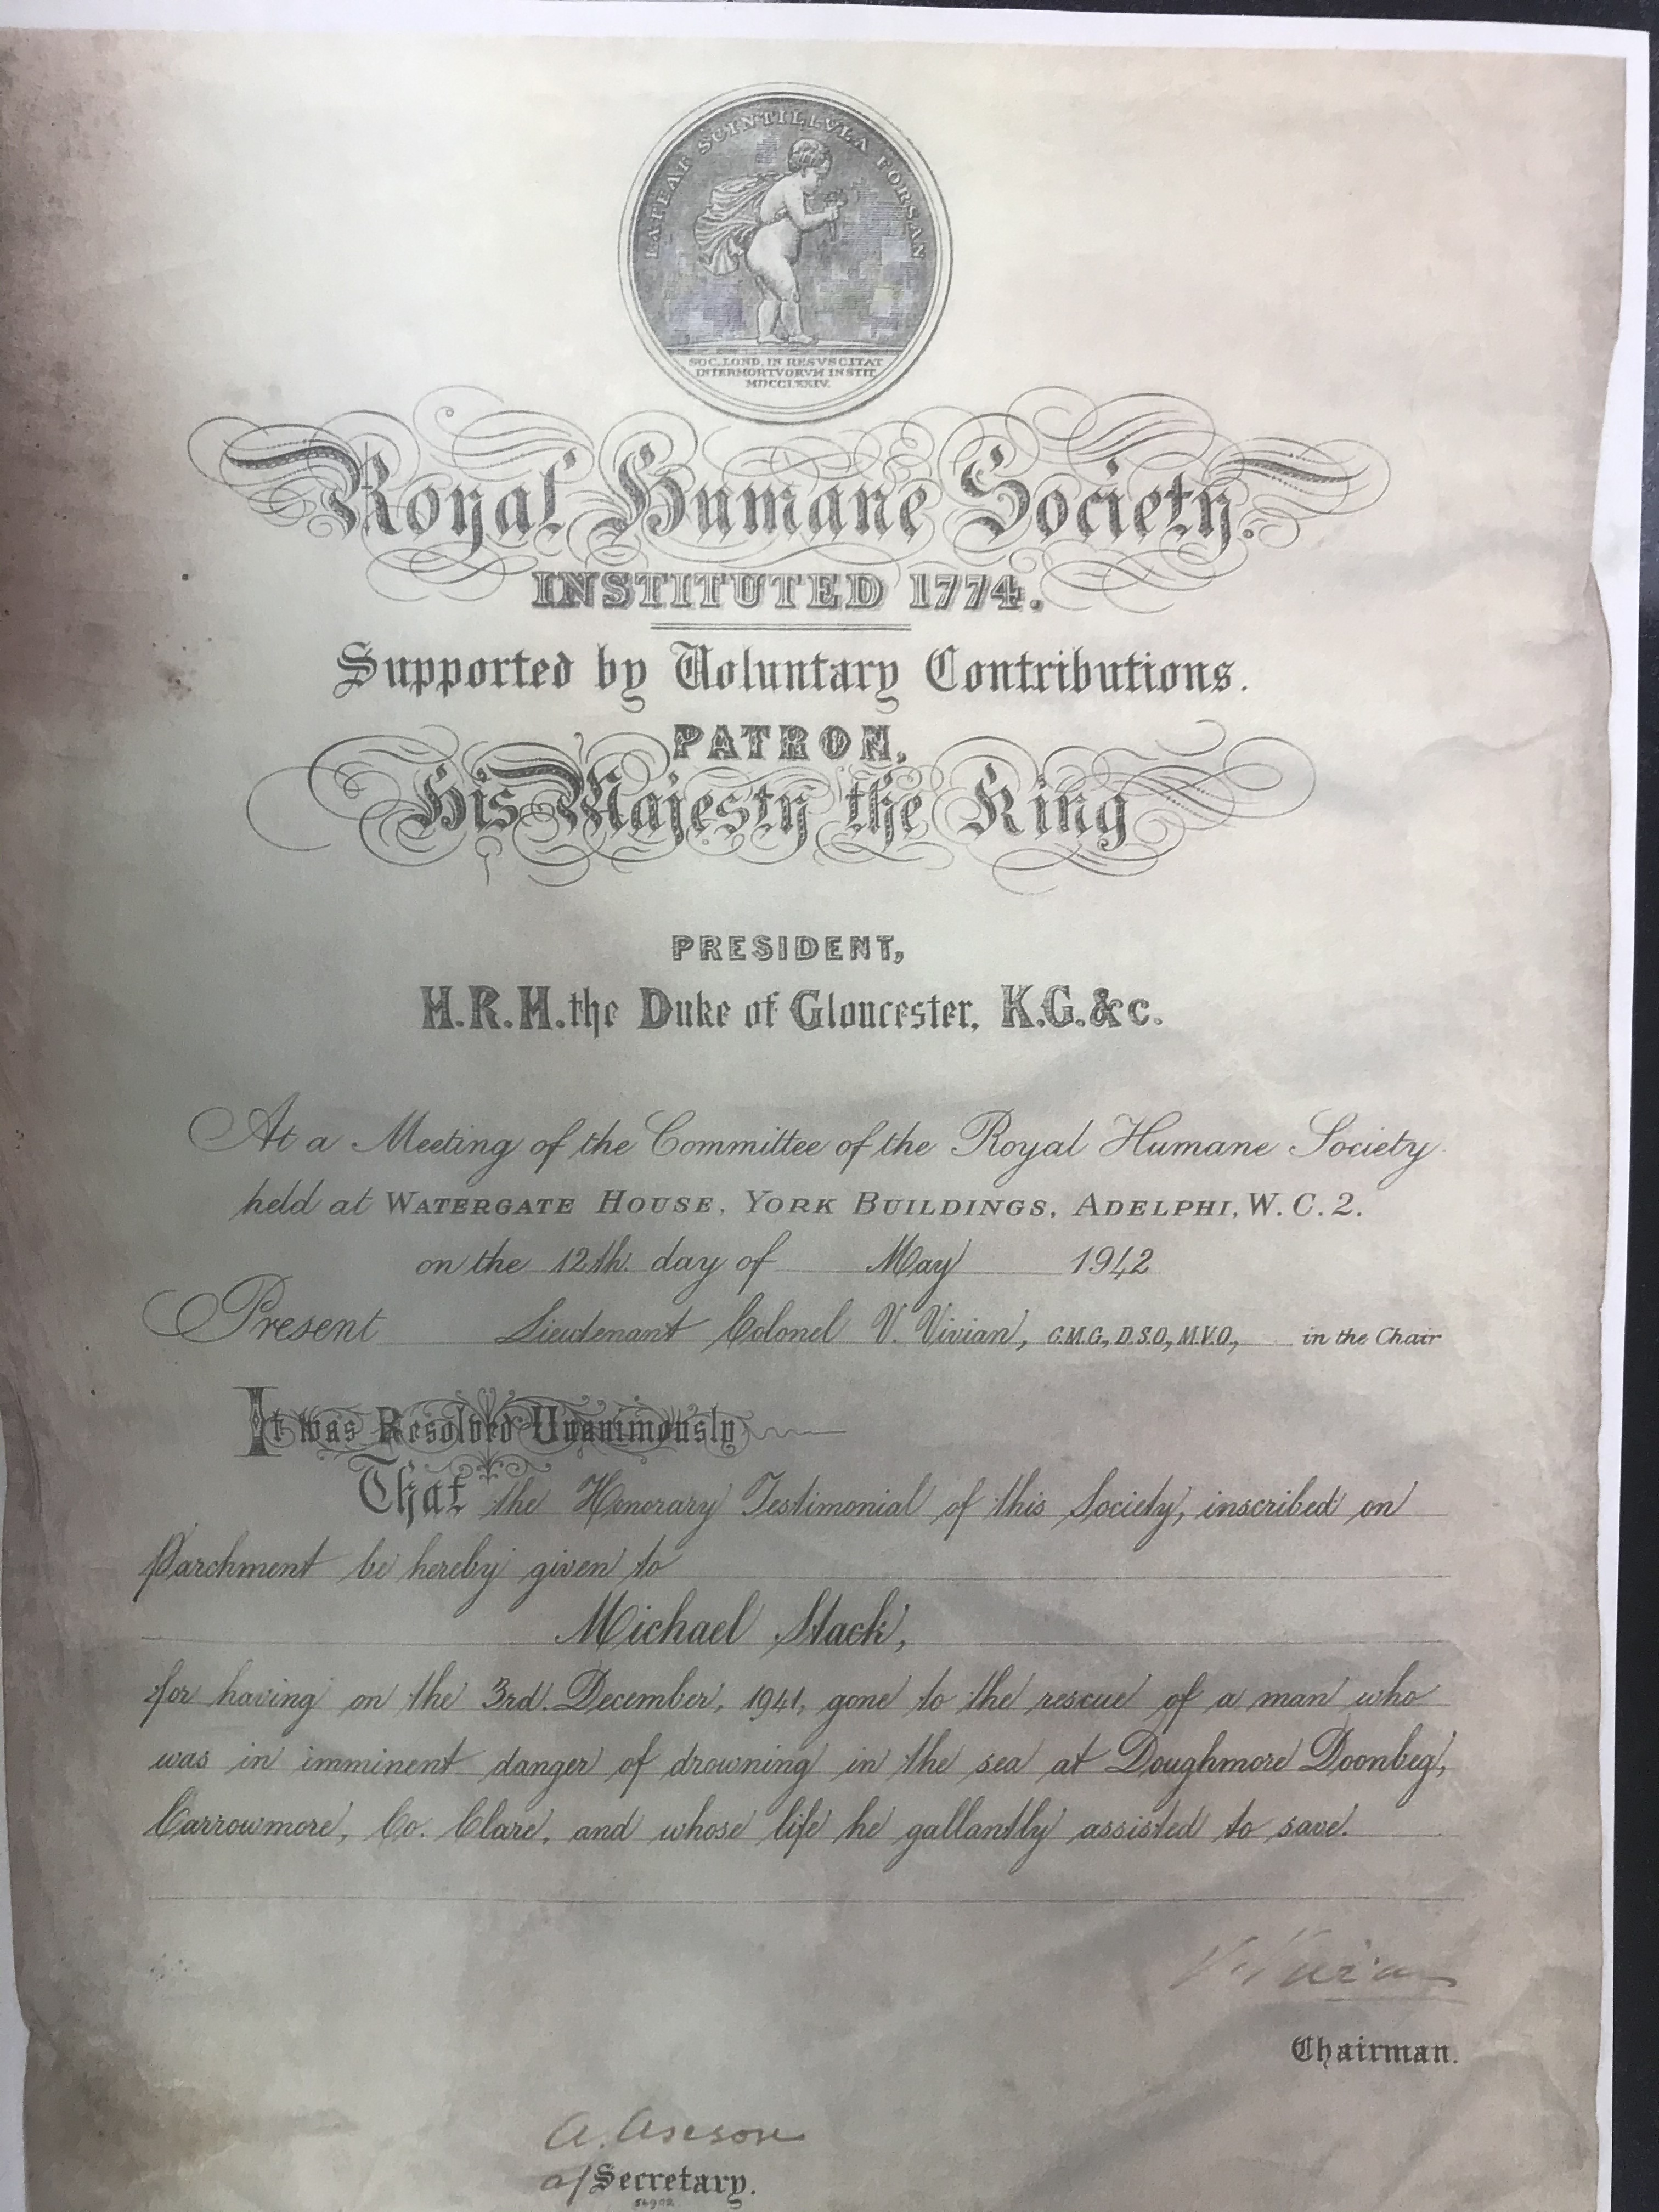 LATEAT SCINTILLVLA FORSAN
SOC. LOND. IN RESVSCITAT
INTERMORTVORVM INSTIT.
MDCCLXXIV.
Royal Humane Society.
INSTITUTED 1774.
Supported by Voluntary Contributions.
PATRON,
His Majesty the King
PRESIDENT,
H.R.H. the Duke of Gloucester, K.G. &c.
At a Meeting of the Committee of the Royal Humane Society
held at WATERGATE HOUSE, YORK BUILDINGS, ADELPHI, W.C.2.
on the 12th. day of May 1942
Present Lieutenant Colonel V. Vivian, C.M.G., D.S.O., M.V.O., in the Chair
It was Resolved Unanimously
That the Honorary Testimonial of this Society, inscribed on
Parchment be hereby given to
Michael Stack,
for having on the 3rd. December, 1941, gone to the rescue of a man who
was in imminent danger of drowning in the sea at Doughmore Doonbeg,
Carrowmore, Co. Clare, and whose life he gallantly assisted to save.
V. Vivian
Chairman.
a/Secretary.